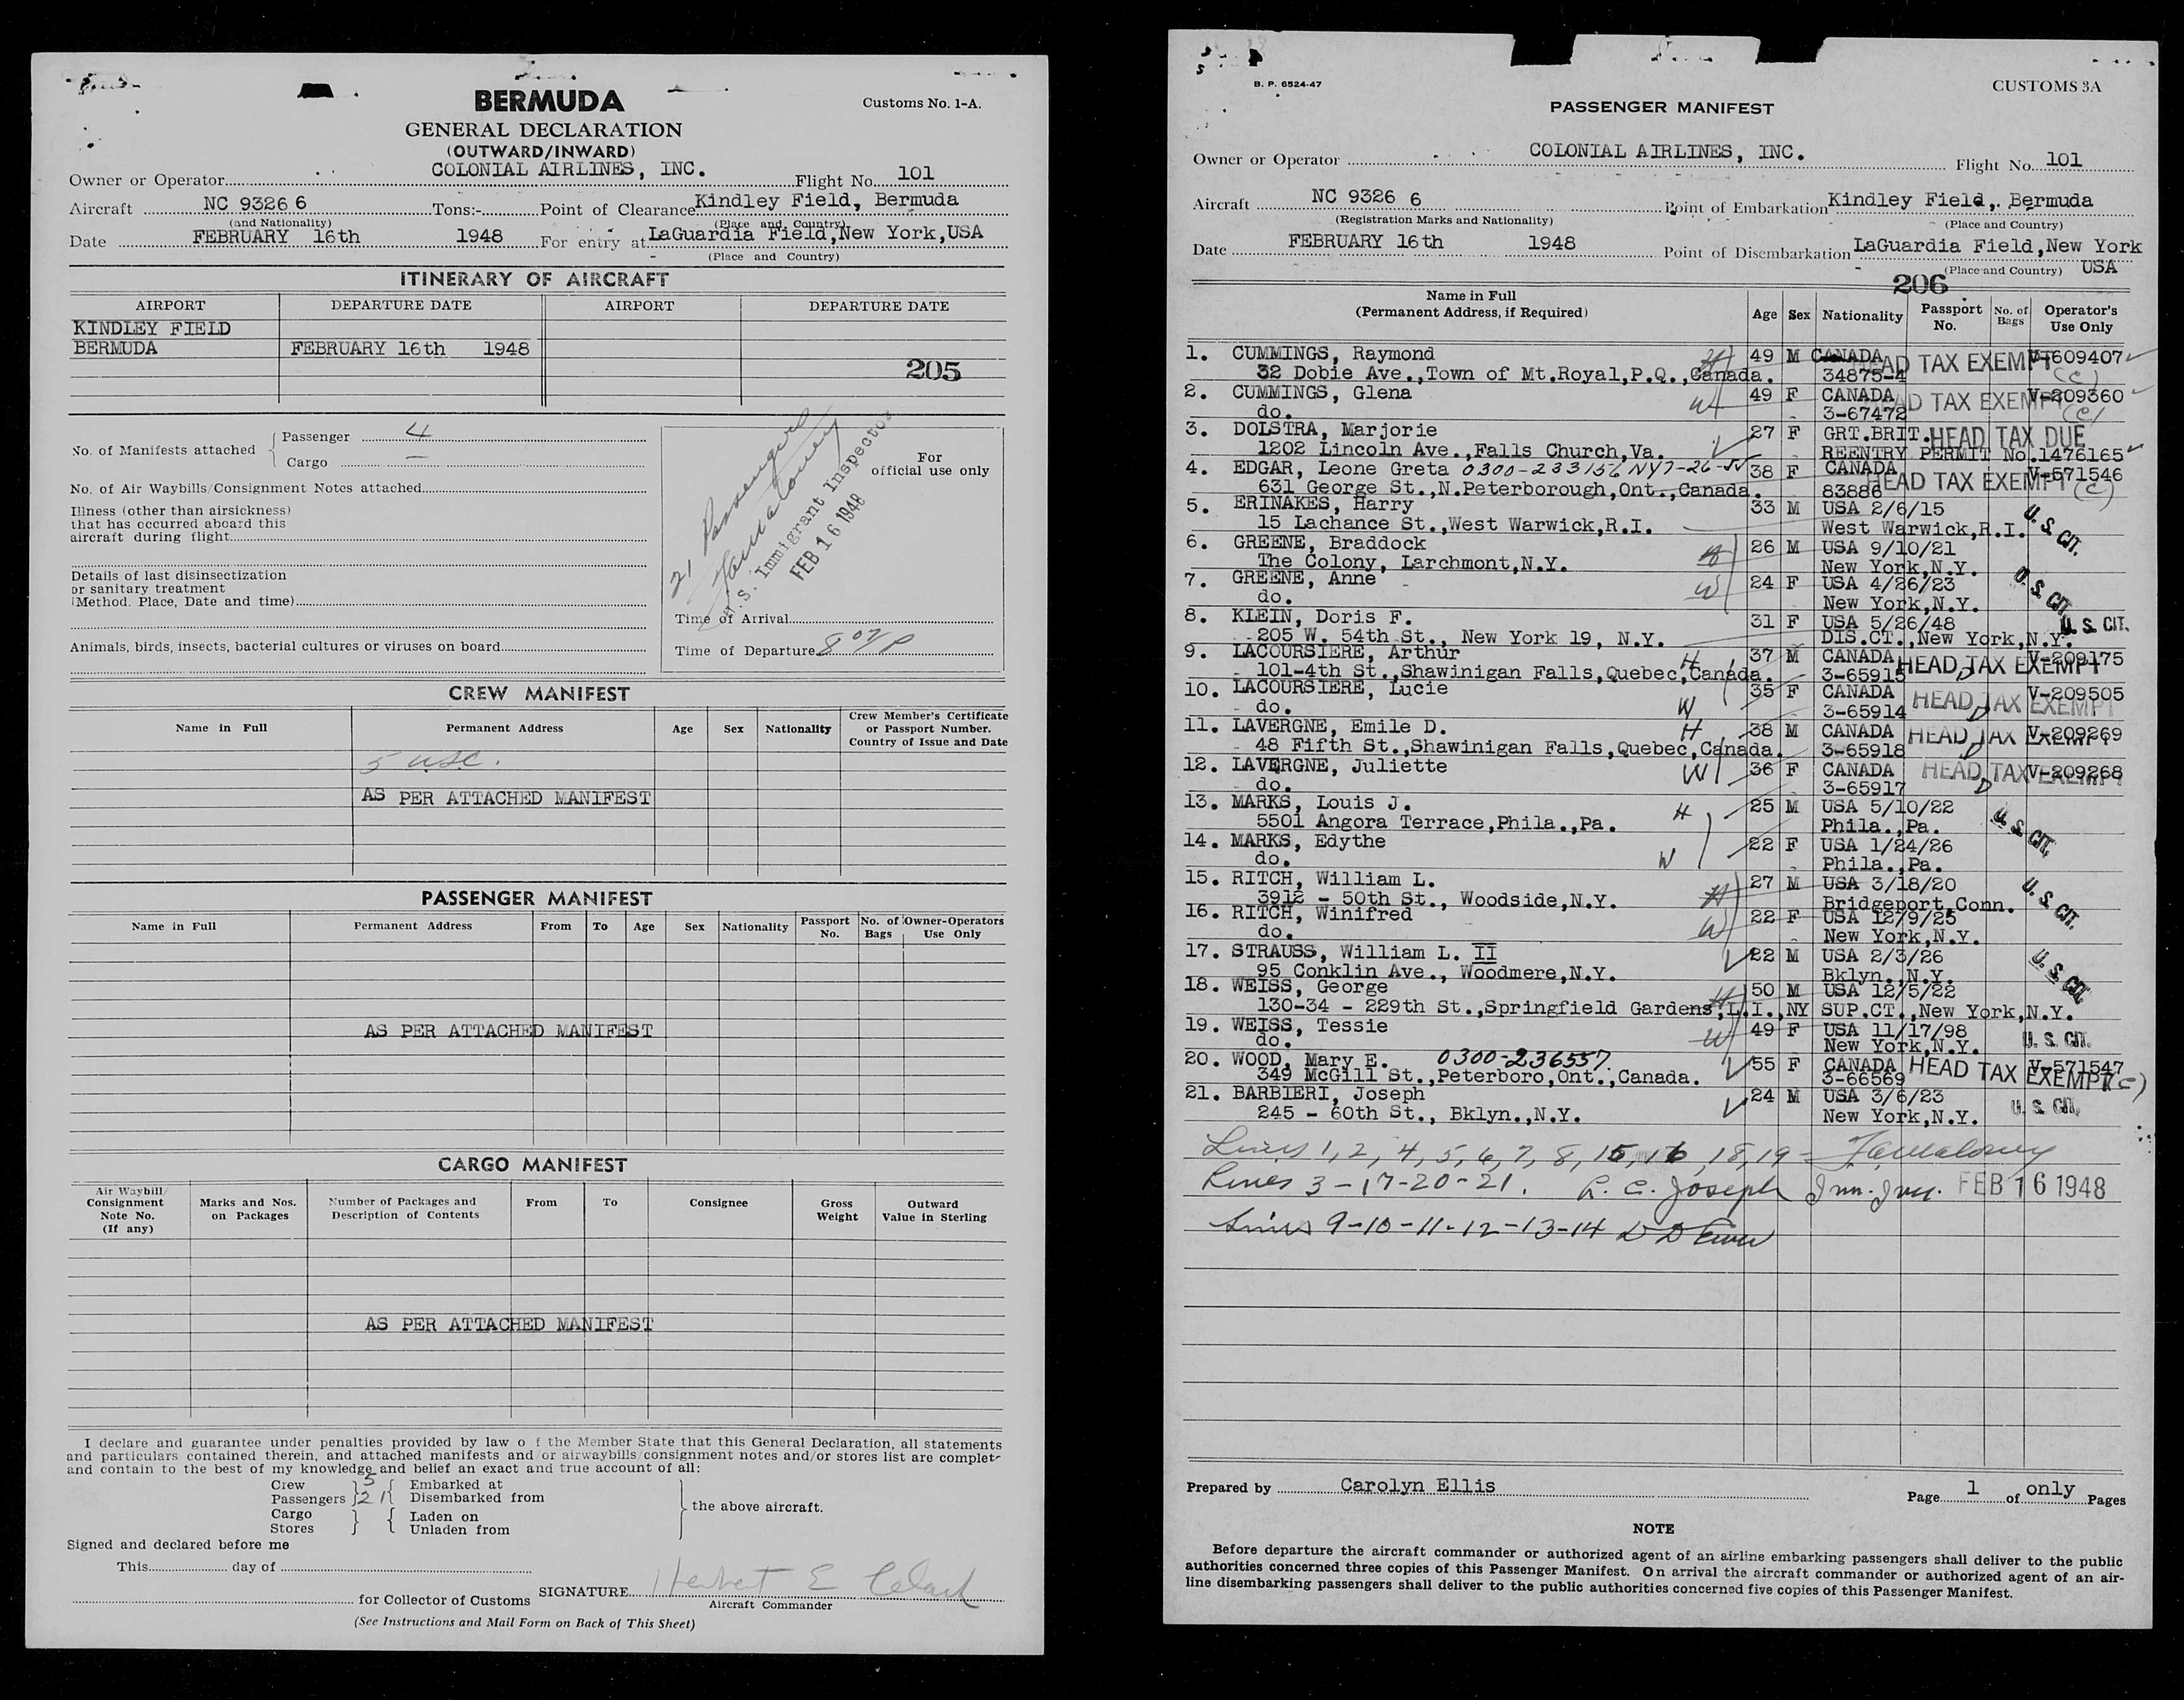 BERMUDA
Customs No. 1-A.
GENERAL DECLARATION
(OUTWARD/INWARD)
Owner or Operator COLONIAL AIRLINES, INC. Flight No. 101
Aircraft NC 9326 6 Tons:- Point of Clearance Kindley Field, Bermuda
(and Nationality) (Place and Country)
Date FEBRUARY 16th 1948 For entry at LaGuardia Field,New York,USA
(Place and Country)
ITINERARY OF AIRCRAFT
AIRPORT DEPARTURE DATE AIRPORT DEPARTURE DATE
KINDLEY FIELD
BERMUDA FEBRUARY 16th 1948
205
No. of Manifests attached { Passenger 4
Cargo —
No. of Air Waybills/Consignment Notes attached
Illness (other than airsickness)
that has occurred aboard this
aircraft during flight
Details of last disinsectization
or sanitary treatment
(Method. Place, Date and time)
Animals, birds, insects, bacterial cultures or viruses on board
For
official use only
21 Passengers
U.S. Immigrant Inspector
FEB 16 1948
Time of Arrival
Time of Departure 807P
CREW MANIFEST
Name in Full Permanent Address Age Sex Nationality Crew Member's Certificate or Passport Number. Country of Issue and Date
5 USC.
AS PER ATTACHED MANIFEST
PASSENGER MANIFEST
Name in Full Permanent Address From To Age Sex Nationality Passport No. No. of Bags Owner-Operators Use Only
AS PER ATTACHED MANIFEST
CARGO MANIFEST
Air Waybill/ Consignment Note No. (If any) Marks and Nos. on Packages Number of Packages and Description of Contents From To Consignee Gross Weight Outward Value in Sterling
AS PER ATTACHED MANIFEST
I declare and guarantee under penalties provided by law o f the Member State that this General Declaration, all statements
and particulars contained therein, and attached manifests and/or airwaybills/consignment notes and/or stores list are complete
and contain to the best of my knowledge and belief an exact and true account of all:
Crew 5 Embarked at
Passengers 21 Disembarked from
the above aircraft.
Cargo Laden on
Stores Unladen from
Signed and declared before me
This day of
for Collector of Customs SIGNATURE Herbert E
Aircraft Commander
(See Instructions and Mail Form on Back of This Sheet)
B. P. 6524-47
CUSTOMS 3A
PASSENGER MANIFEST
Owner or Operator COLONIAL AIRLINES, INC. Flight No. 101
Aircraft NC 9326 6 Point of Embarkation Kindley Field, Bermuda
(Registration Marks and Nationality) (Place and Country)
Date FEBRUARY 16th 1948 Point of Disembarkation LaGuardia Field,New York
(Place and Country) USA
206
Name in Full
(Permanent Address, if Required) Age Sex Nationality Passport No. No. of Bags Operator's Use Only
1. CUMMINGS, Raymond H 49 M CANADA HEAD TAX EXEMPT V-609407
32 Dobie Ave.,Town of Mt.Royal,P.Q.,Canada. 34875-4 (C)
2. CUMMINGS, Glena W 49 F CANADA HEAD TAX EXEMPT V-209360
do. 3-67472 (C)
3. DOLSTRA, Marjorie 27 F GRT.BRIT. HEAD TAX DUE
1202 Lincoln Ave.,Falls Church,Va. REENTRY PERMIT No.1476165
4. EDGAR, Leone Greta 0300-233156 NY7-26-55 38 F CANADA HEAD TAX EXEMPT V-571546
631 George St.,N.Peterborough,Ont.,Canada. 83886 (C)
5. ERINAKES, Harry 33 M USA 2/6/15
15 Lachance St.,West Warwick,R.I. West Warwick,R.I. U.S. CIT.
6. GREENE, Braddock H 26 M USA 9/10/21
The Colony, Larchmont,N.Y. New York,N.Y.
7. GREENE, Anne W 24 F USA 4/26/23 U.S. CIT.
do. New York,N.Y.
8. KLEIN, Doris F. 31 F USA 5/26/48 U.S. CIT.
205 W. 54th St., New York 19, N.Y. DIS.CT.,New York,N.Y.
9. LACOURSIERE, Arthur H 37 M CANADA HEAD TAX EXEMPT V-209175
101-4th St.,Shawinigan Falls,Quebec,Canada. 3-65915
10. LACOURSIERE, Lucie W 35 F CANADA HEAD TAX EXEMPT V-209505
do. 3-65914
11. LAVERGNE, Emile D. H 38 M CANADA HEAD TAX EXEMPT V-209269
48 Fifth St.,Shawinigan Falls,Quebec,Canada. 3-65918
12. LAVERGNE, Juliette W 36 F CANADA HEAD TAX EXEMPT V-209268
do. 3-65917
13. MARKS, Louis J. H 25 M USA 5/10/22
5501 Angora Terrace,Phila.,Pa. Phila.,Pa. U.S. CIT.
14. MARKS, Edythe W 22 F USA 1/24/26
do. Phila.,Pa.
15. RITCH, William L. H 27 M USA 3/18/20
3912 - 50th St., Woodside,N.Y. Bridgeport,Conn. U.S. CIT.
16. RITCH, Winifred W 22 F USA 12/9/25
do. New York,N.Y.
17. STRAUSS, William L. II 22 M USA 2/3/26
95 Conklin Ave., Woodmere,N.Y. Bklyn.,N.Y. U.S. CIT.
18. WEISS, George H 50 M USA 12/5/22
130-34 - 229th St.,Springfield Gardens,L.I.,NY SUP.CT.,New York,N.Y.
19. WEISS, Tessie W 49 F USA 11/17/98
do. New York,N.Y. U.S. CIT.
20. WOOD, Mary E. 0300-236557 55 F CANADA HEAD TAX EXEMPT V-571547
349 McGill St.,Peterboro,Ont.,Canada. 3-66569 (C)
21. BARBIERI, Joseph 24 M USA 3/6/23
245 - 60th St., Bklyn.,N.Y. New York,N.Y. U.S. CIT.
Lines 1, 2, 4, 5, 6, 7, 8, 15, 16, 18, 19 -
Lines 3-17-20-21. R. C. Joseph Imm. Ins. FEB 16 1948
Lines 9-10-11-12-13-14
Prepared by Carolyn Ellis Page 1 of only Pages
NOTE
Before departure the aircraft commander or authorized agent of an airline embarking passengers shall deliver to the public
authorities concerned three copies of this Passenger Manifest. On arrival the aircraft commander or authorized agent of an air-
line disembarking passengers shall deliver to the public authorities concerned five copies of this Passenger Manifest.